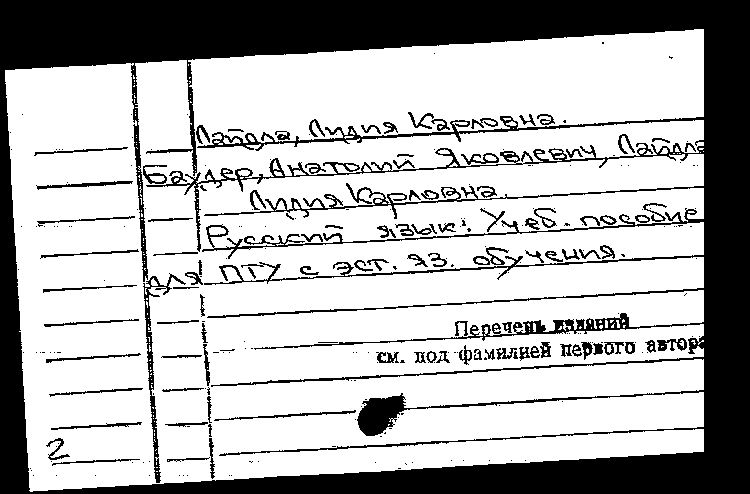 Лайдла, Лидия Карловна.
Баудер, Анатолий Яковлевич, Лайдла
Лидия Карловна.
Русский язык: Учеб. пособие
для ПТУ с эст. яз. обучения.
Перечень изданий
см. под фамилией первого автора
2